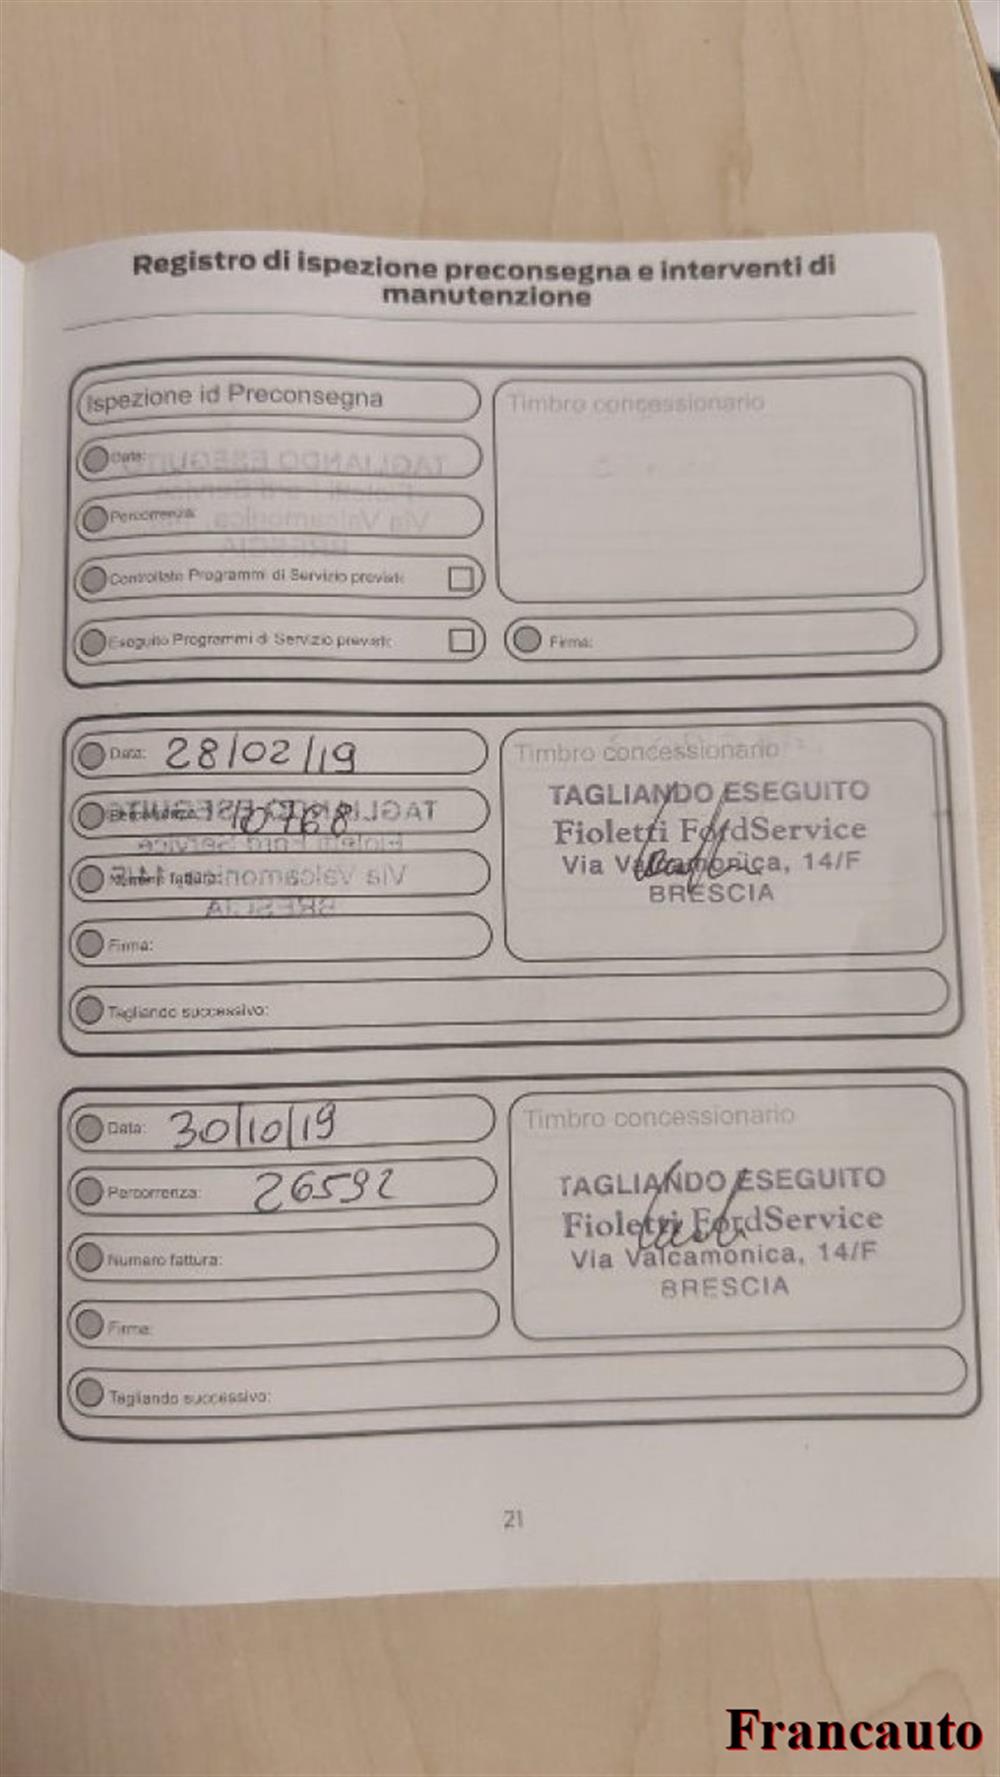 Registro di ispezione preconsegna e interventi di
manutenzione
Ispezione id Preconsegna
Timbro concessionario
Data:
Percorrenza:
Controllato Programmi di Servizio previsti:
Eseguito Programmi di Servizio previsti:
Firma:
Data: 28/02/19
Timbro concessionario
TAGLIANDO ESEGUITO
Fioletti FordService
Via Valcamonica, 14/F
BRESCIA
Percorrenza: 10768
Numero fattura:
Firma:
Tagliando successivo:
Data: 30/10/19
Timbro concessionario
TAGLIANDO ESEGUITO
Fioletti FordService
Via Valcamonica, 14/F
BRESCIA
Percorrenza: 26592
Numero fattura:
Firma:
Tagliando successivo:
21
Francauto